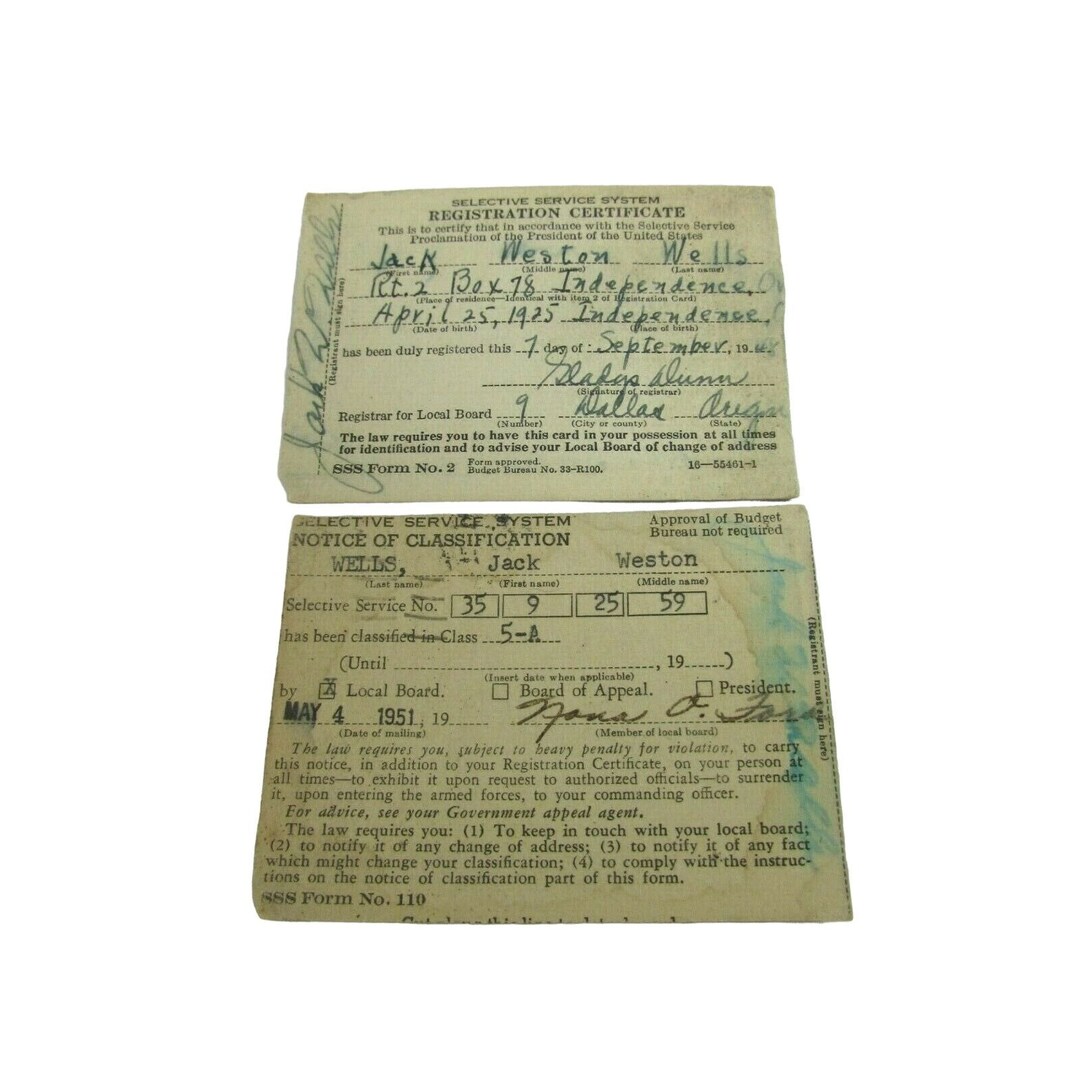 SELECTIVE SERVICE SYSTEM
REGISTRATION CERTIFICATE
This is to certify that in accordance with the Selective Service
Proclamation of the President of the United States
Jack Weston Wells
(First name) (Middle name) (Last name)
Rt. 2 Box 78 Independence, Or
(Place of residence—Identical with item 2 of Registration Card)
April 25, 1925 Independence,
(Date of birth) (Place of birth)
has been duly registered this 7 day of September, 1948
Gladys Dunn
(Signature of registrar)
Registrar for Local Board 9 Dallas Oregon
(Number) (City or county) (State)
The law requires you to have this card in your possession at all times
for identification and to advise your Local Board of change of address
SSS Form No. 2 Form approved.
Budget Bureau No. 33-R100. 16—55461-1
Jack W Wells
(Registrant must sign here)
SELECTIVE SERVICE SYSTEM Approval of Budget
NOTICE OF CLASSIFICATION Bureau not required
WELLS, Jack Weston
(Last name) (First name) (Middle name)
Selective Service No. 35 9 25 59
has been classified in Class 5-A
(Until , 19 )
(Insert date when applicable)
by X Local Board. Board of Appeal. President.
MAY 4 1951, 19 Nona O.
(Date of mailing) (Member of local board)
The law requires you, subject to heavy penalty for violation, to carry
this notice, in addition to your Registration Certificate, on your person at
all times—to exhibit it upon request to authorized officials—to surrender
it, upon entering the armed forces, to your commanding officer.
For advice, see your Government appeal agent.
The law requires you: (1) To keep in touch with your local board;
(2) to notify it of any change of address; (3) to notify it of any fact
which might change your classification; (4) to comply with the instruc-
tions on the notice of classification part of this form.
SSS Form No. 110
(Registrant must sign here)